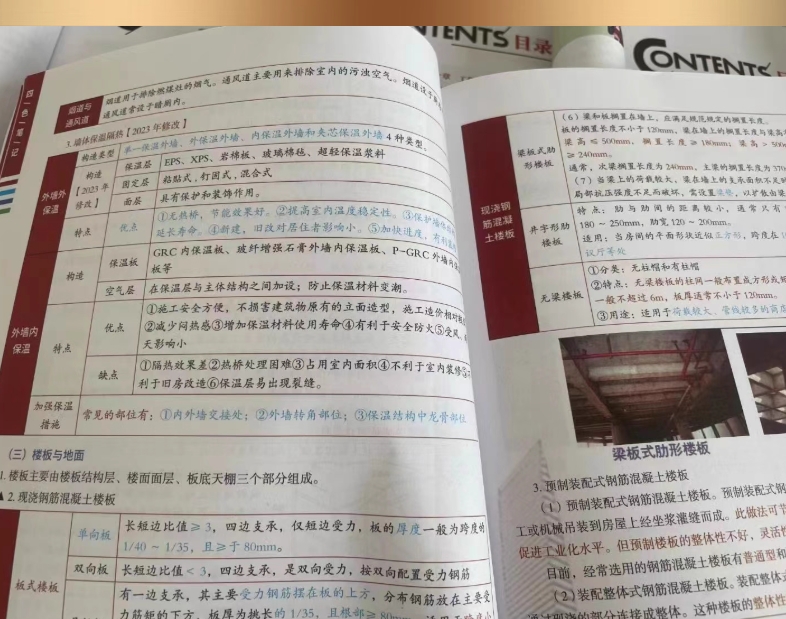 CONTENTS 目录
CONTENTS
四色笔记
烟道与
通风道
烟道用于排除燃煤灶的烟气。通风道主要用来排除室内的污浊空气。烟道设于
通风道常设于暗厕内。
3.墙体保温隔热【2023年修改】
外墙外
保温
构造类型
单一保温外墙、外保温外墙、内保温外墙和夹芯保温外墙4种类型。
构造
【2023年
修改】
保温层
EPS、XPS、岩棉板、玻璃棉毡、超轻保温浆料
固定层
粘贴式,钉固式,混合式
面层
具有保护和装饰作用。
特点
优点
①无热桥,节能效果好。②提高室内温度稳定性。③保护墙体
延长寿命。④新建,旧改对居住者影响小。⑤加快进度,有利
外墙内
保温
构造
保温板
GRC内保温板、玻纤增强石膏外墙内保温板、P-GRC外墙内
板等
空气层
在保温层与主体结构之间加设;防止保温材料变潮。
特点
优点
①施工安全方便,不损害建筑物原有的立面造型,施工造价相对
②减少闷热感③增加保温材料使用寿命④有利于安全防火⑤受风、
天影响小
缺点
①隔热效果差②热桥处理困难③占用室内面积④不利于室内装修⑤
利于旧房改造⑥保温层易出现裂缝。
加强保温
措施
常见的部位有:①内外墙交接处;②外墙转角部位;③保温结构中龙骨部位
(三)楼板与地面
1.楼板主要由楼板结构层、楼面面层、板底天棚三个部分组成。
▲2.现浇钢筋混凝土楼板
板式楼板
单向板
长短边比值≥3,四边支承,仅短边受力,板的厚度一般为跨度的
1/40~1/35,且≥于80mm。
双向板
长短边比值<3,四边支承,是双向受力,按双向配置受力钢筋
有一边支承,其主要受力钢筋摆在板的上方,分布钢筋放在主要受
力筋矩的下方,板厚为挑长的1/35,且根部≥80
现浇钢
筋混凝
土楼板
梁板式肋
形楼板
(6)梁和板搁置在墙上,应满足规范规定的搁置长度。
板的搁置长度不小于120mm,梁在墙上的搁置长度与梁高
梁高≤500mm,搁置长度≥180mm;梁高>500
≥240mm。
通常,次梁搁置长度为240mm,主梁的搁置长度为370
(7)当梁上的荷载较大,梁在墙上的支承面积不足
局部抗压强度不足而破坏,需设置梁垫,以扩散由梁
井字形肋
楼板
特点:肋与肋间的距离较小,通常只有
180~250mm,肋宽120~200mm。
适用:当房间的平面形状近似正方形,跨度在
议厅等处
无梁楼板
①分类:无柱帽和有柱帽
②特点:无梁楼板的柱网一般布置成方形或
一般不超过6m,板厚通常不小于120mm。
③用途:适用于荷载较大、管线较多的商店
梁板式肋形楼板
3.预制装配式钢筋混凝土楼板
(1)预制装配式钢筋混凝土楼板。预制装配式钢
工或机械吊装到房屋上经坐浆灌缝而成。此做法可节
促进工业化水平。但预制楼板的整体性不好,灵活性
目前,经常选用的钢筋混凝土楼板有普通型和
(2)装配整体式钢筋混凝土楼板。装配整体
通过现浇的部分连接成整体。这种楼板的整体性